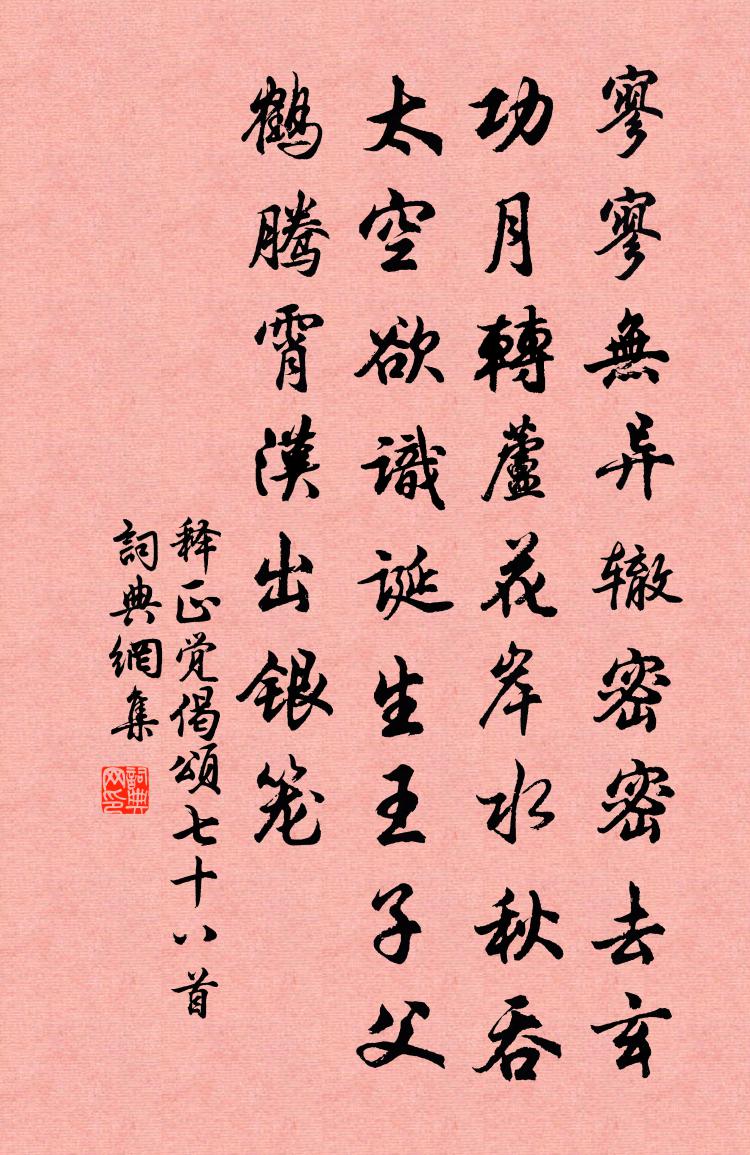 寥寥無异辙密密去玄
功月轉蘆花岸水秋吞
太空欲識誕生王子父
鶴騰霄漢出銀笼
释正觉偈頌七十八首
詞典網集
詞典网印